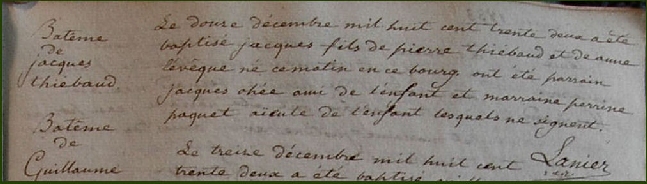 Batême
de
jacques
thiébaud.
Le douse décembre mil huit cent trente deux a été
baptisé jacques fils de pierre thiébaud et de anne
lévêque né ce matin en ce bourg. ont été parrain
jacques chée ami de l'enfant et marraine perrine
paquet aieule de l'enfant lesquals ne signent.
Lanier
Batême
de
Guillaume
Le treise décembre mil huit cent
trente deux a été baptisé